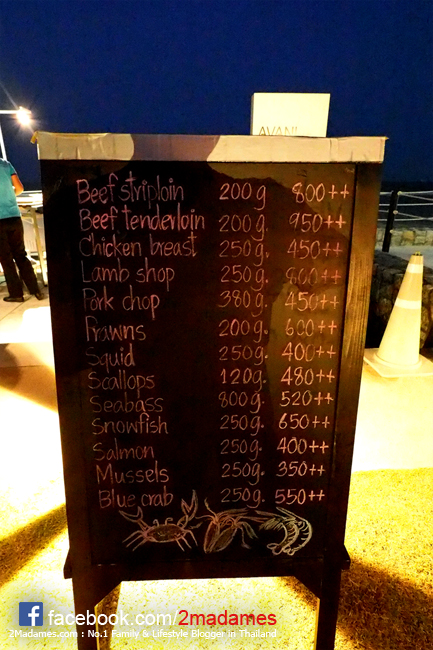 AVANI
Beef striploin 200g 800++
Beef tenderloin 200g. 950++
Chicken breast 250g. 450++
Lamb shop 250g. 800++
Pork chop 380g. 450++
Prawns 200g. 600++
Squid 250g. 400++
Scallops 120g. 480++
Seabass 800g. 520++
Snowfish 250g. 650++
Salmon 250g. 400++
Mussels 250g. 350++
Blue crab 250g. 550++
facebook.com/2madames
2Madames.com : No.1 Family & Lifestyle Blogger in Thailand